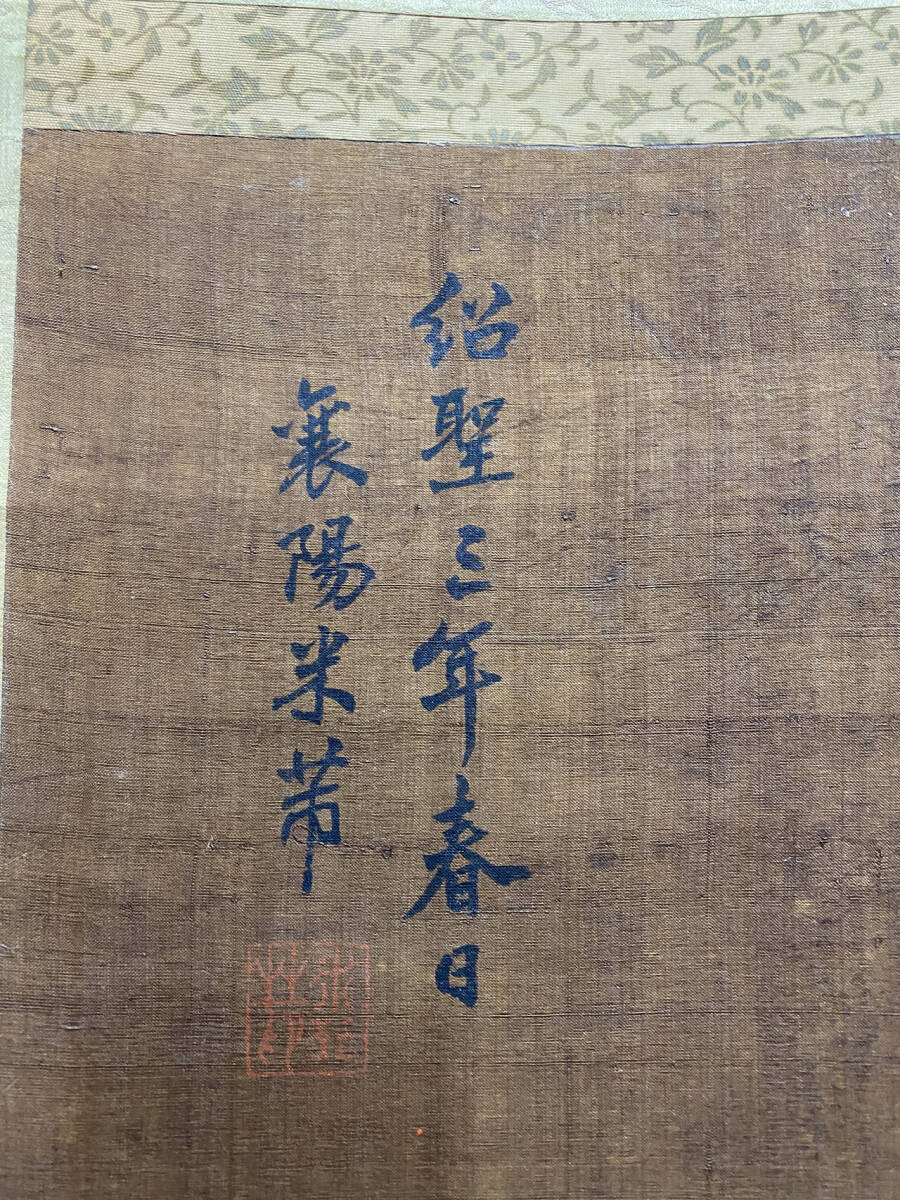 紹聖三年春日
襄陽米芾